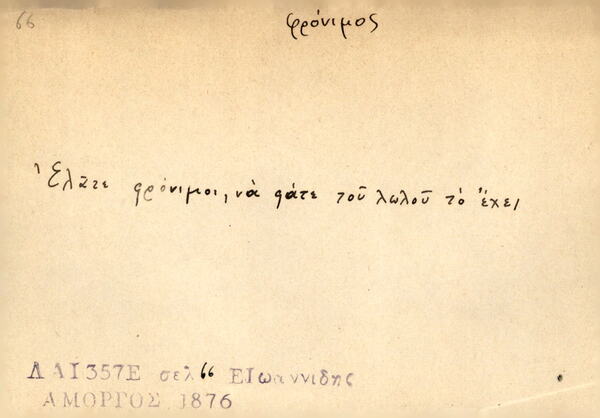 66
φρόνιμος
Ἐλᾶτε φρόνιμοι, νὰ φάτε τοῦ λωλοῦ τὸ ἔχει
ΛΑ1357Ε σελ 66 ΕΙωαννιδης
ΑΜΟΡΓΟΣ 1876